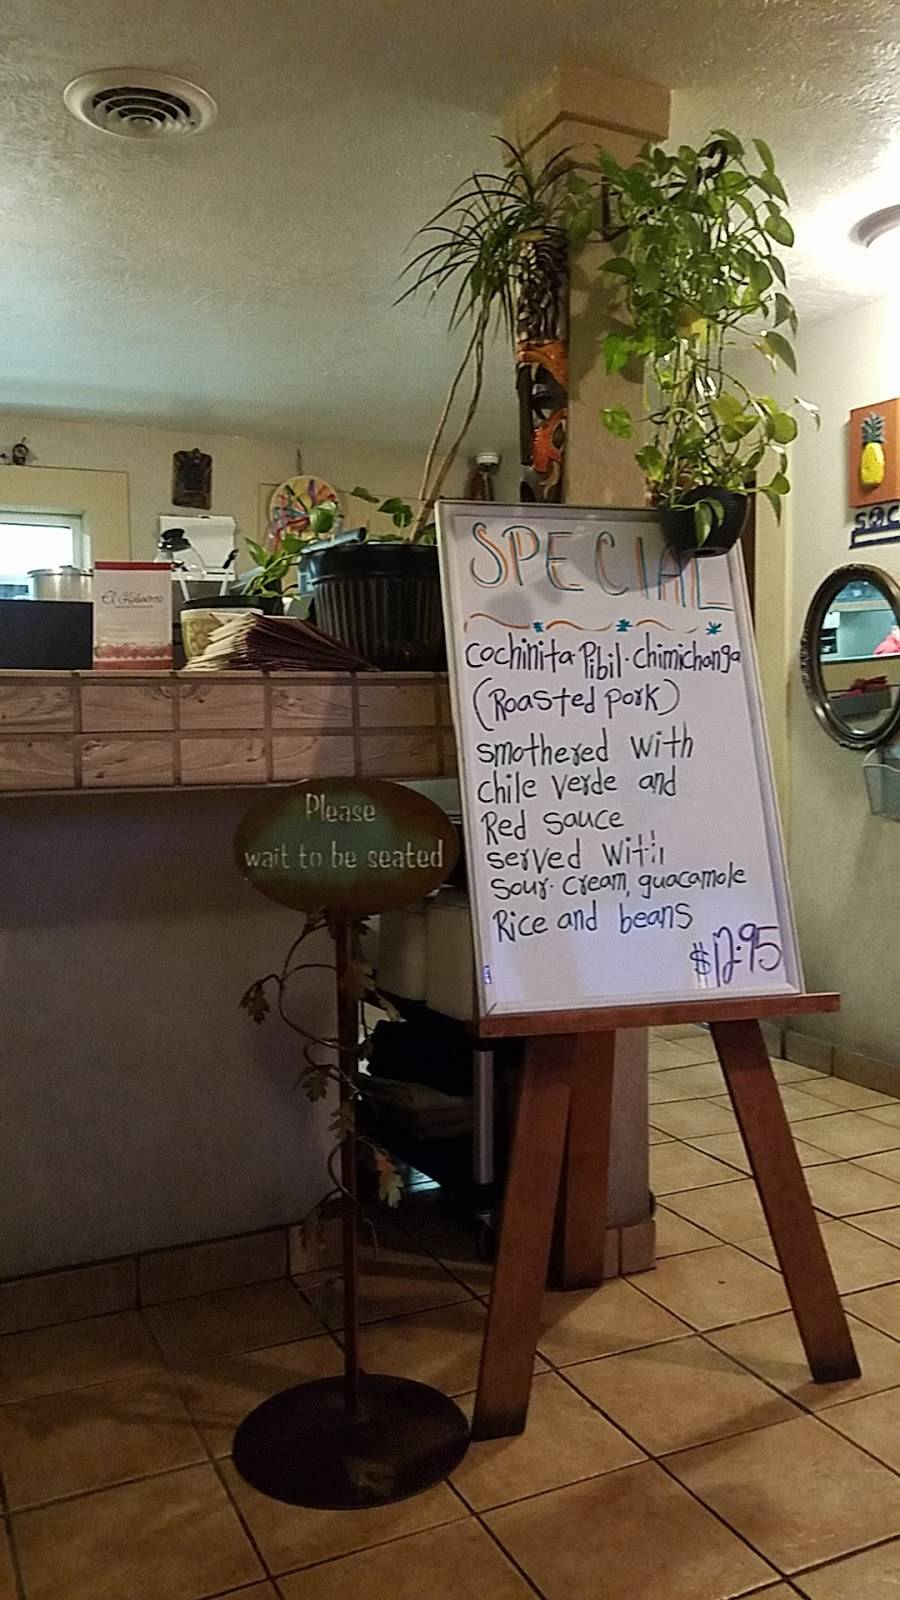 SPECIAL
Cochinita Pibil Chimichanga
(Roasted pork)
smothered with
chile verde and
Red sauce
served with
Sour cream, guacamole
Rice and beans
$12.95
Please
wait to be seated
El Habanero